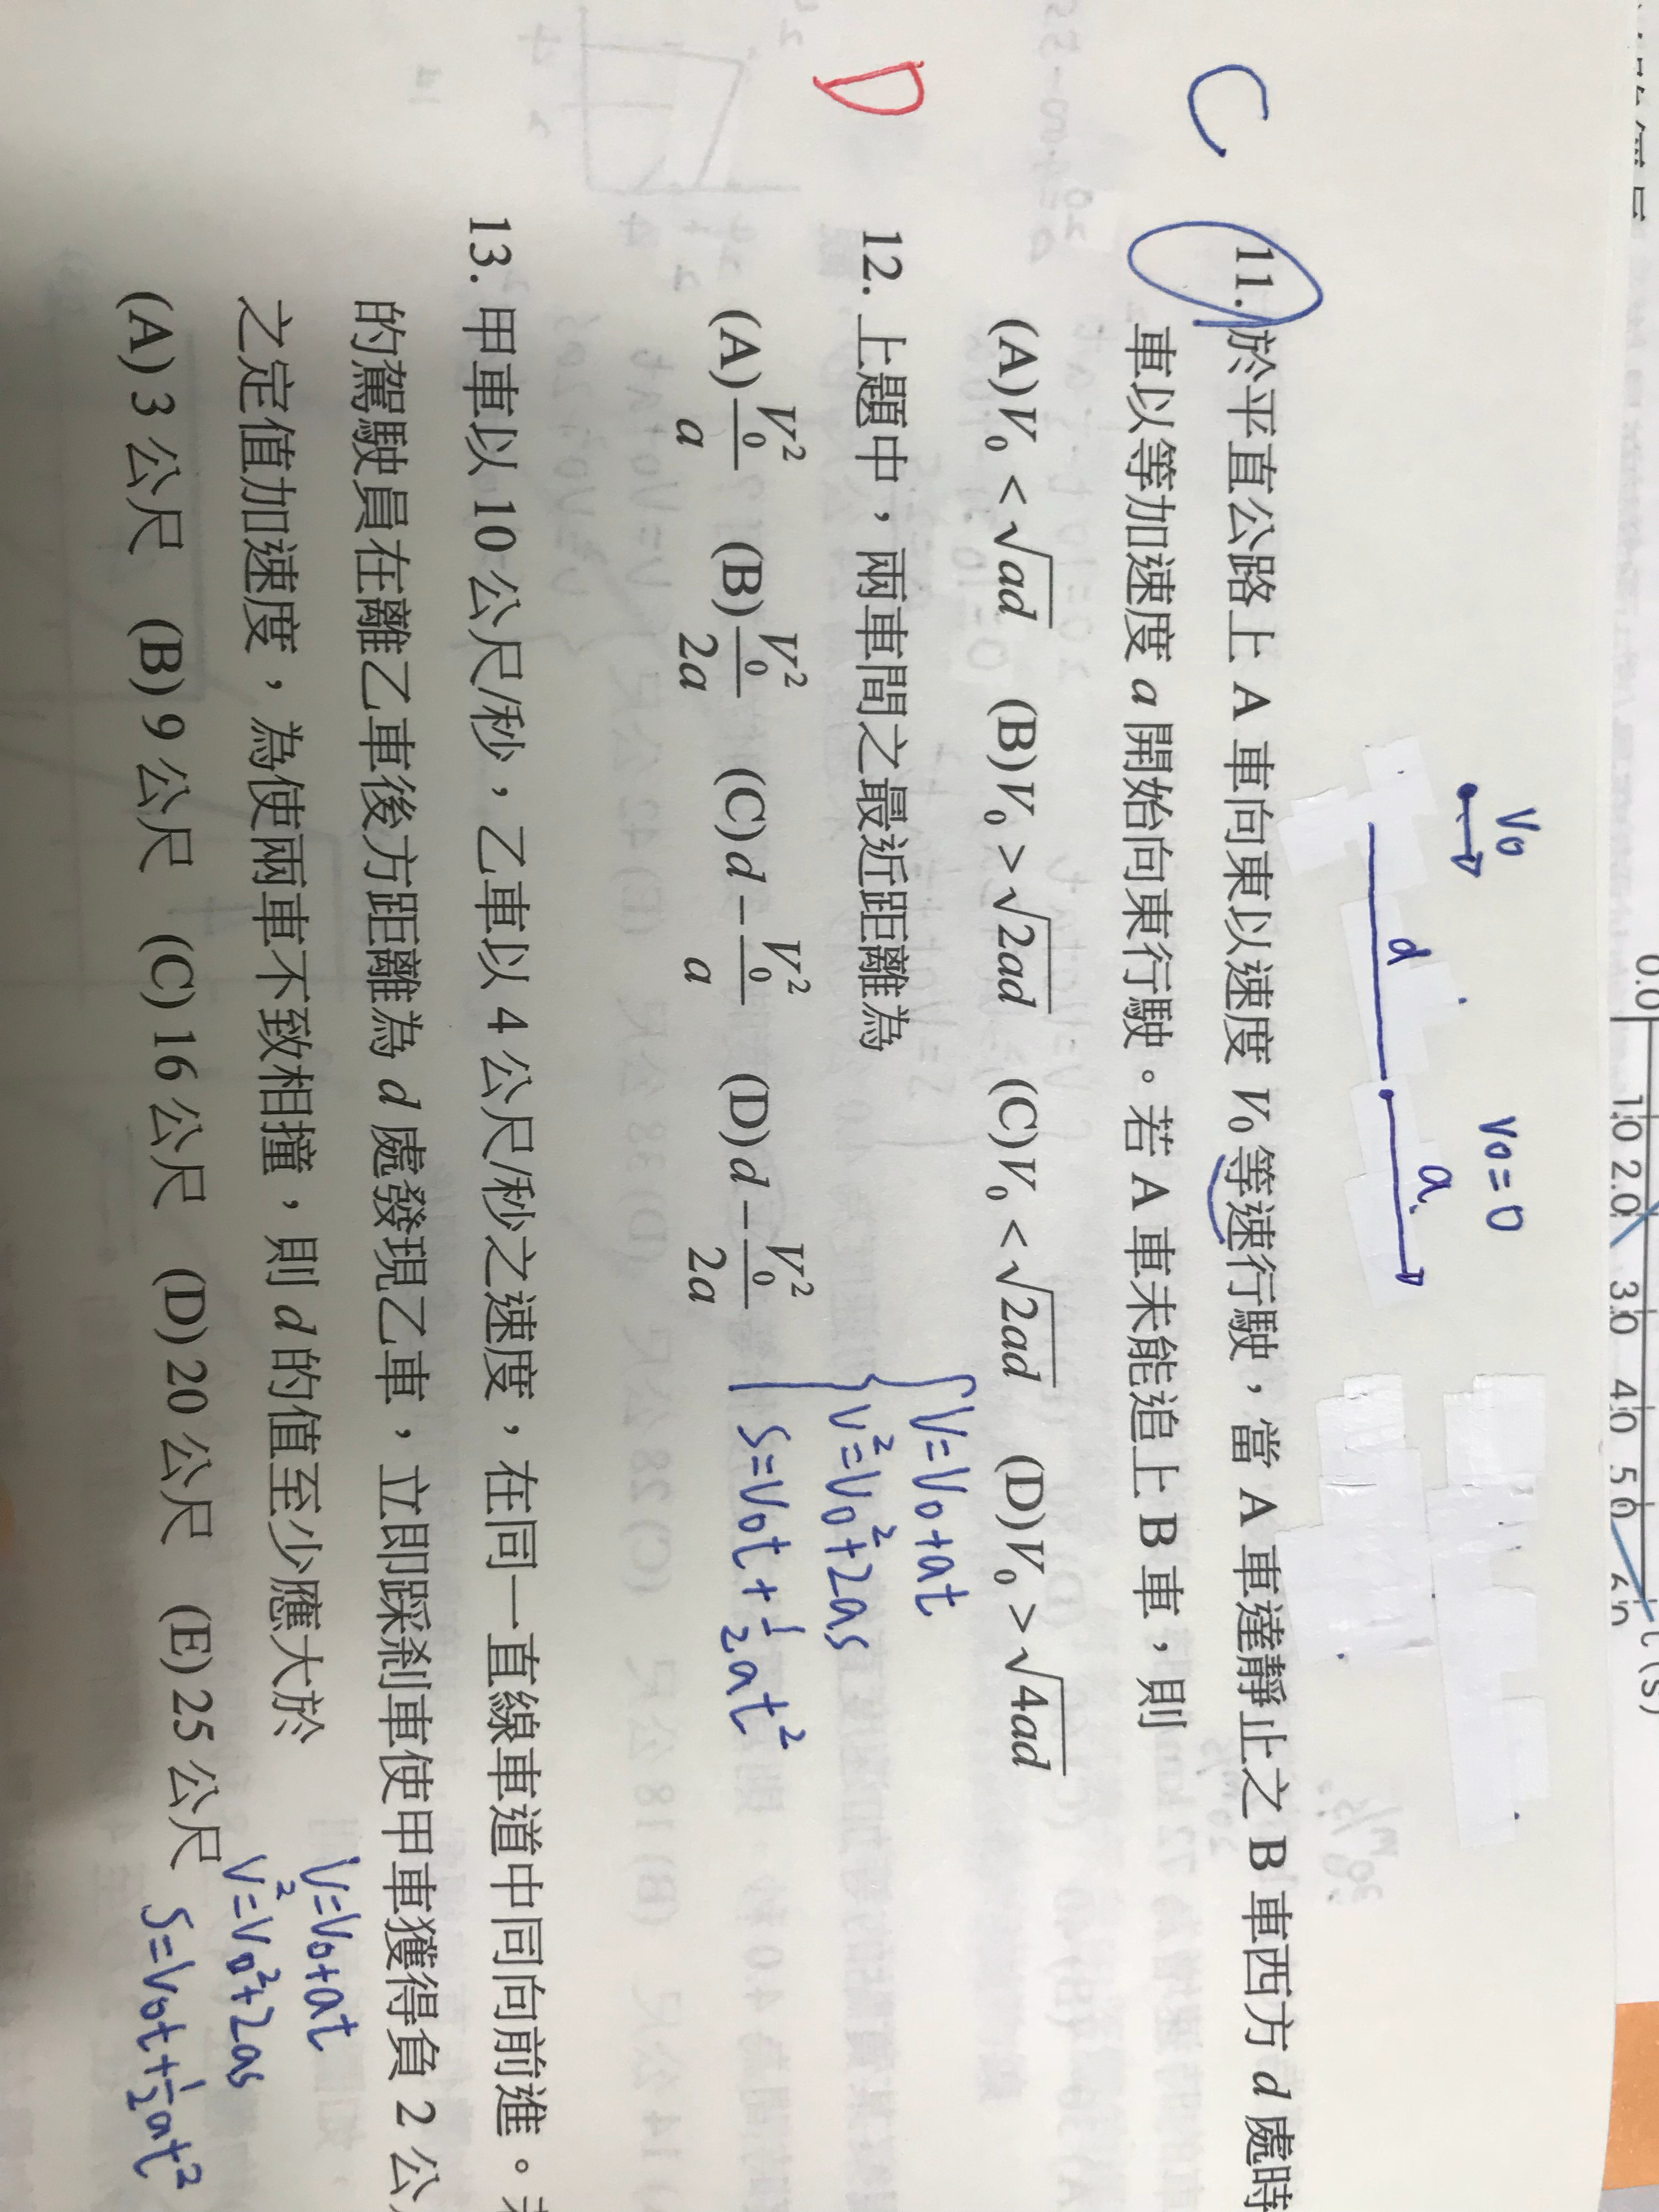 0.0 1.0 2.0 3.0 4.0 5.0 t(s)
V₀ V₀=0
d a
C
11.於平直公路上 A 車向東以速度 V₀ 等速行駛，當 A 車達靜止之 B 車西方 d 處時
車以等加速度 a 開始向東行駛。若 A 車未能追上 B 車，則
(A)V₀<√ad (B)V₀>√2ad (C)V₀<√2ad (D)V₀>√4ad
V=V₀+at
V²=V₀²+2as
S=V₀t+½at²
D
12.上題中，兩車間之最近距離為
(A)V₀²/a (B)V₀²/2a (C)d−V₀²/a (D)d−V₀²/2a
13.甲車以 10 公尺/秒，乙車以 4 公尺/秒之速度，在同一直線車道中同向前進。
的駕駛員在離乙車後方距離為 d 處發現乙車，立即踩剎車使甲車獲得負 2 公
之定值加速度，為使兩車不致相撞，則 d 的值至少應大於
(A) 3 公尺 (B) 9 公尺 (C) 16 公尺 (D) 20 公尺 (E) 25 公尺
V=V₀+at
V²=V₀²+2as
S=V₀t+½at²